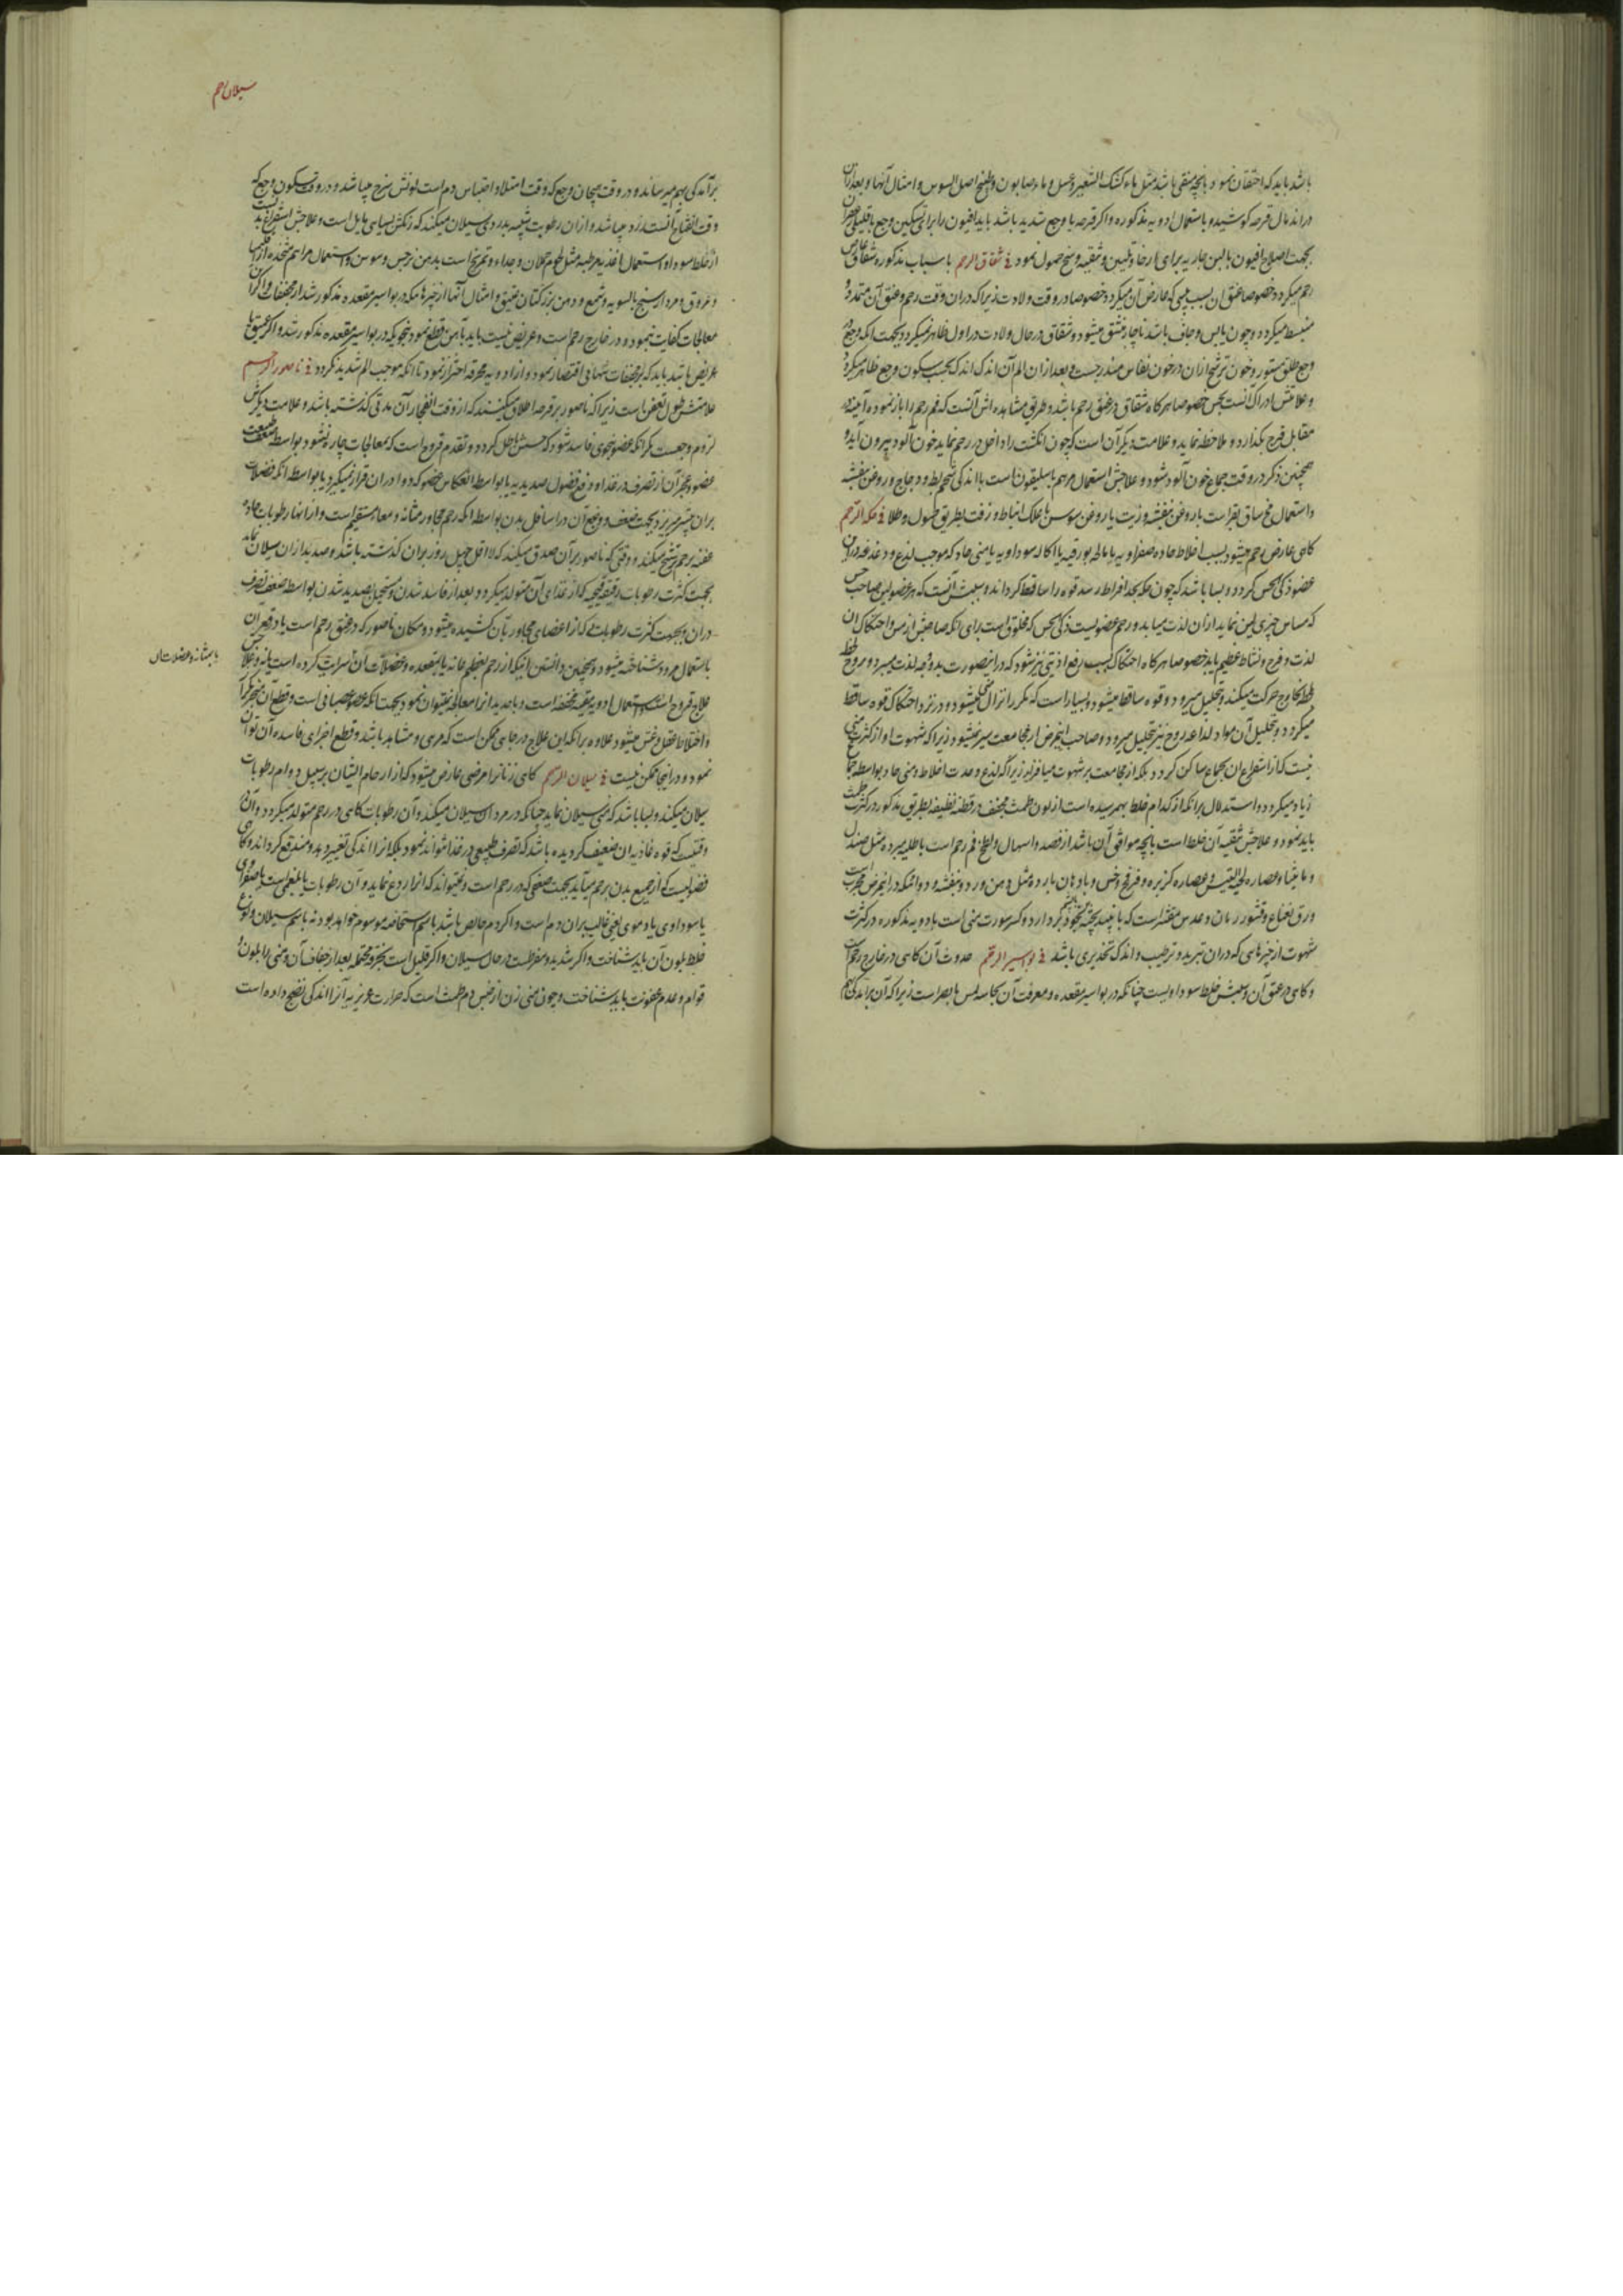 باشد باید که احتقان نمود بانچه منقی باشد مثل ماء کشک الشعیر و عسل و ماء صابون و طبیخ اصل السوس و امثال آنها و بعد ازان
در اندمال قرحه کوشیده و باستعمال ادویه مذکوره و اکر قرحه با وجع شدید باشد باید افیون را برای تسکین وجع با قلیلی زعفران
بجهت اصلاح افیون بالبن جاریه برای ارخا و تلیین و تنقیه وسخ حمول نمود فی شقاق الرحم باسباب مذکوره شقاق عارض
رحم میکردد خصوصا عنق ان بسبب یبسی که عارض آن میکردد خصوصا در وقت ولادت زیرا که دران وقت رحم و عنق آن متمدد و
منبسط میکردد و چون یابس و جاف باشد ناچار منشق میشود و شقاق در حال ولادت در اول ظاهر نمیکردد بجهت انکه وجع
وجع طلق مستور و خون ترشح ازان در خون نفاس مندرجست و بعد ازان الم آن اندک اندک بحسب سکون وجع ظاهر میکردد
و علامتش ادراک آنست بحس خصوصا هرکاه شقاق در عنق رحم باشد و طریق مشاهده اش آنست که فم رحم را باز نموده آینه در
مقابل فرج بکذارد و ملاحظه نماید و علامت دیکر آن است که چون انکشت را داخل در رحم نماید خون آلود بیرون آید و
همچنین ذکر در وقت جماع خون آلود شود و علاجش استعمال مرهم باسلیقون است با اندکی شحم بط و دجاج و روغن بنفشه
و استعمال مخ ساق بقر است با روغن بنفشه و زیت یا روغن سوسن با علک انباط و زفت بطریق حمول و طلا فی حکة الرحم
کاهی عارض رحم میشود بسبب اخلاط حاده صفراویه یا مالحه بورقیه یا اکاله سوداویه یا منی حاد که موجب لذع و دغدغه دران
عضو ذکی الحس کردد و بسا باشد که چون حکه بحد افراط رسد قوه را ساقط کرداند و سببش آنست که هر عضوی صاحب حس
که مساس چیزی لمس نماید ازان لذت میابد و رحم عضویست ذکی الحس که مخلوق است برای انکه صاحبش از مس و احتکاک ان
لذت و فرح و نشاط عظیم یابد خصوصا هرکاه احتکاک بسبب رفع اذیتی نیز شود که دراینصورت بدو وجه لذت میبرد و روح
بخارج حرکت میکند و تحلیل میرود و قوه ساقط میشود و بسیار است که مکرر انزال میشود و در نزد احتکاک قوه ساقط
میکردد و تحلیل آن مواد لذاعه روح نیز تحلیل میرود و صاحب اینمرض از مجامعت سیر نمیشود زیرا که شهوت او از کثرت منی
نیست که از استفراغ ان بجماع ساکن کردد بلکه از مجامعت بر شهوت میافزاید زیرا که لذع و حدت اخلاط و منی حاد بواسطه جماع
زیاد میکردد و استدلال برانکه از کدام خلط بهم رسیده است از لون طمث مجفف در قطنه نظیفه بطریق مذکور در کثرت طمث
باید نمود و علاجش تنقیه آن خلط است بانچه موافق آن باشد از فصد و اسهال و لطخ فم رحم است باطلیه مبرده مثل صندل
و مامیثا و عصاره لحیة التیس و عصاره کزبره و فرفخ و خس و بادهان بارده مثل دهن ورد و بنفشه و دوائیکه دراینمرض مجرب است
ورق نعناع و قشور رمان و عدس مقشر است که با نبیذ پخته بخود بردارد و کسر سورت منی است بادویه مذکوره در کثرت
شهوت از چیزهایی که دران تبرید و ترطیب و اندک تخدیری باشد فی بواسیر الرحم حدوث آن کاهی در خارج رحم است
و کاهی در عنق آن و سببش خلط سوداویست چنانکه در بواسیر مقعده و معرفت آن بحاسه لمس یا بصر است زیرا که آن برآمدکی
سیلان رحم
برآمدکی بهم میرساند و در وقت هیجان وجع که وقت امتلا و احتباس دم است لونش سرخ میباشد و در وقت سکون وجع که
وقت انفتاح آنست زرد میباشد و ازان رطوبت شبیه بدردی سیلان میکند که رنکش بسیاهی مایل است و علاجش استفراغ بدنست
از خلط سودا و استعمال اغذیه مرطبه مثل لحوم حملان و جداء و تمریخ است بدهن نرجس و سوسن و استعمال مراهم متخذه از
و عروق و مردار سنج بالسویه و شمع و دهن بزر کتان عتیق و امثال آنها از چیزهاییکه در بواسیر مقعده مذکور شد از مجففات و اکر آن
معالجات کفایت ننمود و در خارج رحم است و عریض نیست باید بآهن قطع نمود بنحویکه در بواسیر مقعده مذکور شد و اکر عمیق یا
عریض باشد باید که بر مجففات بتنهایی اقتصار نمود و از ادویه محرقه احتراز نمود تا انکه موجب الم شدید نکردد فی ناصور الرحم
علامتش طول تعفن است زیرا که ناصور بر قرحه اطلاق میکنند که از وقت انفجار آن مدتی کذشته باشد و علامت دیکرش
لزوم وجعست مکر انکه عضو بنحوی فاسد شود که حسش باطل کردد و تقدم قروح است که بمعالجات چاره نشود بواسطه ضعف
عضو و عجز آن از تصرف در غذا و دفع فضول صدیدیه یا بواسطه انعکاس عضو که دوا دران قرار نمیکیرد یا بواسطه انکه فضلات
بران بیشتر میریزد بجهت ضعف و وضع آن در اسافل بدن بواسطه انکه رحم مجاور مثانه و معاء مستقیم است و از انها رطوبات حاده
عفنه برحم ترشح میکند و وقتی که ناصور برآن صدق میکند که لااقل چهل روز بران کذشته باشد و صدید ازان سیلان نماید
بجهت کثرت رطوبات رقیقه قیحیه که از غذای آن متولد میکردد بعد از فاسد شدن و مستحیل بصدید شدن بواسطه ضعف تصرف
دران و بجهت کثرت رطوباتی که از اعضای مجاور بآن کشیده میشود و مکان ناصور که در عنق رحم است یا در قعر ان
باستعمال مرود شناخته میشود و همچنین دانستن اینکه از رحم بعظم عانه یا بمقعده و عضلات آن سرایت کرده است یا نه و علاج
بمثانه و عضلات ان
علاج قروح است استعمال ادویه منقیه مجففه است و با حدید انرا معالجه نمیتوان نمود بجهت انکه عضو عصبانی است و قطع آن منجر بکزاز
و اختلاط عقل و غش میشود علاوه برانکه این علاج در جایی ممکن است که مرئی و مشاهد باشد و قطع اجزای فاسده آن توان
نمود و دراینجا ممکن نیست فی سیلان الرحم کاهی زنانرا مرضی عارض میشود که از ارحام ایشان بر سبیل دوام رطوبات
سیلان میکند و بسا باشد که منی سیلان نماید چنانکه در مردان سیلان میکند و آن رطوبات کاهی در رحم متولد میکردد و آن
وقتیست که قوه غاذیه ان ضعیف کردیده باشد که تصرف طبیعی در غذا نتواند نمود بلکه انرا اندکی تغییر دهد و مندفع کرداند و کاهی
فضولیست که از جمیع بدن برحم میآید بجهت ضعفی که در رحم است و نمیتواند که انرا ردع نماید و آن رطوبات یا بلغمی است یا صفراوی
یا سوداوی یا دموی یعنی غالب بران دم است و اکر دم خالص باشد باسم استحاضه موسوم خواهد بود نه باسم سیلان و نوع
خلط بلون آن باید شناخت و اکر شدید و مفرطست در حال سیلان و اکر قلیل است بخرقه محتمله بعد از جفاف آن و منی را بلون و
قوام و عدم عفونت باید شناخت و چون منی زن از جنس دم طمث است که حرارت غریزیه آنرا اندکی نضج داده است